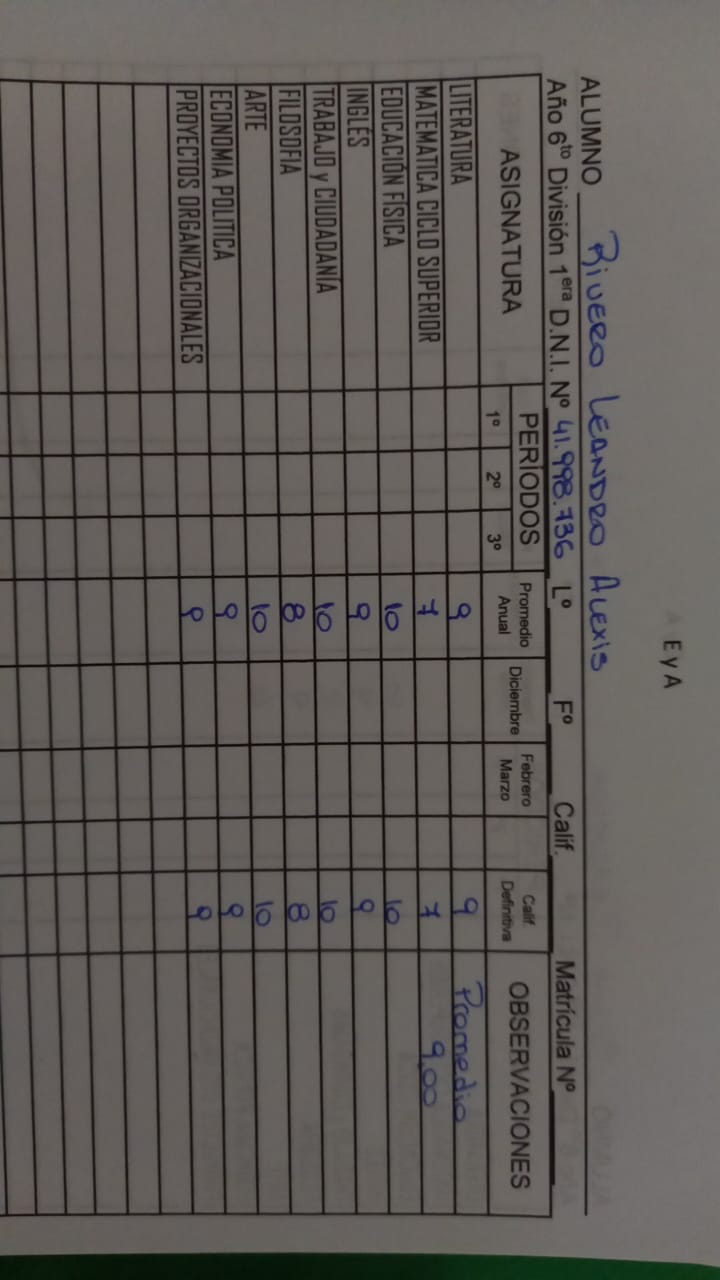 E y A
ALUMNO RIVERO LEANDRO ALEXIS
Año 6to División 1era D.N.I. Nº 41.998.736 Lº Fº Calif. Matrícula Nº
ASIGNATURA PERÍODOS Promedio Anual Diciembre Febrero Marzo Calif. Definitiva OBSERVACIONES
1º 2º 3º
LITERATURA 9 9 Promedio
MATEMATICA CICLO SUPERIOR 7 7 9,00
EDUCACIÓN FÍSICA 10 10
INGLÉS 9 9
TRABAJO y CIUDADANÍA 10 10
FILOSOFIA 8 8
ARTE 10 10
ECONOMIA POLITICA 9 9
PROYECTOS ORGANIZACIONALES 9 9